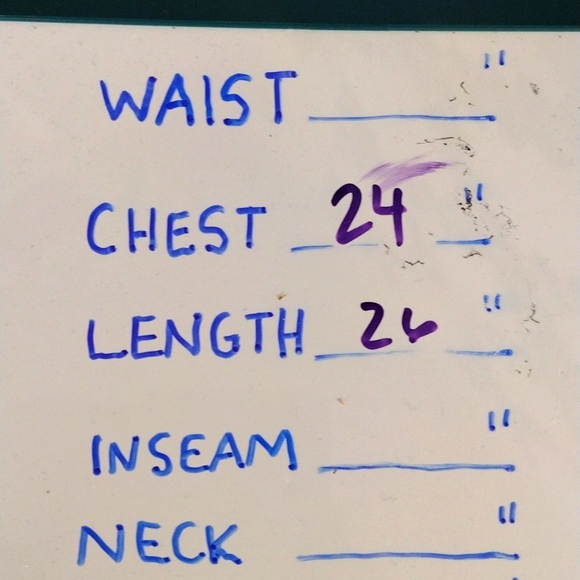 WAIST ______"
CHEST 24"
LENGTH 26"
INSEAM ______"
NECK ______"